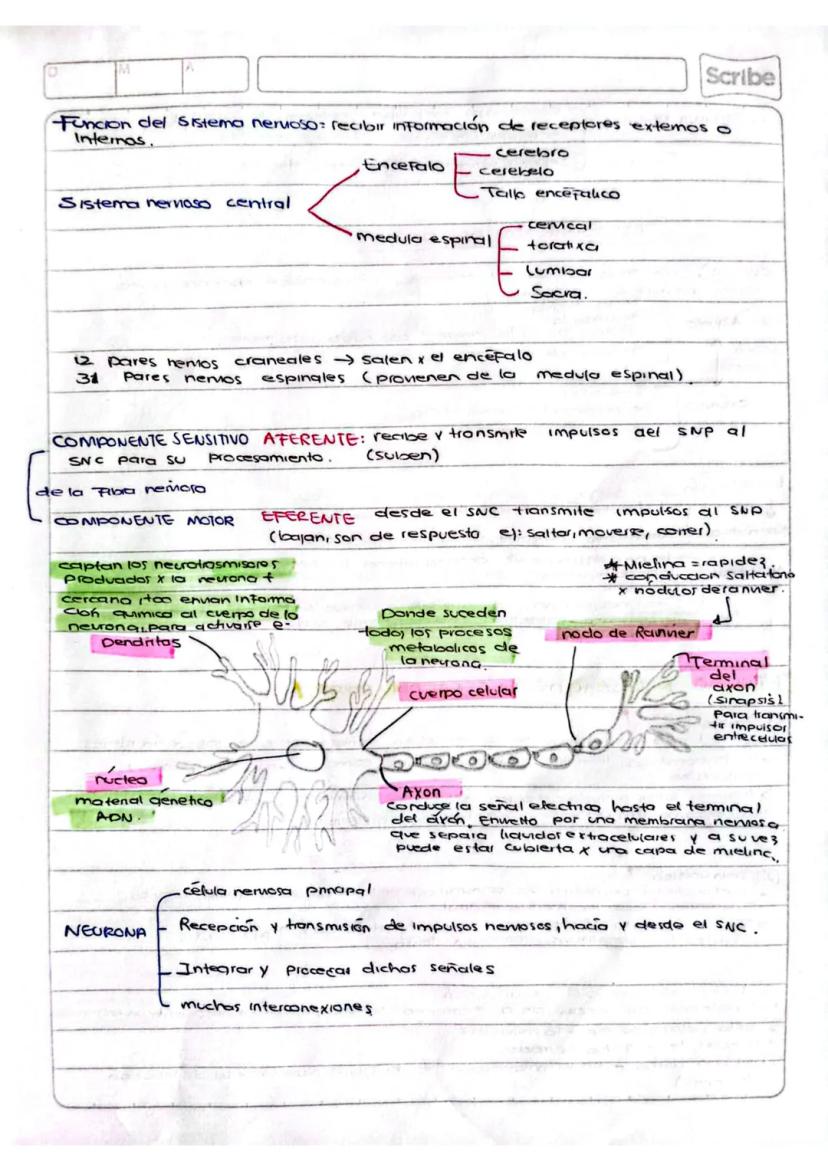 D M A
Scribe
Función del Sistema nervioso: recibir información de receptores externos o
Internos.
Sistema nervioso central
Encefalo
cerebro
cerebelo
Tallo encéfalico
medula espinal
cervical
toraxica
Lumbar
Sacra.
12 pares nervios craneales → Salen x el encéfalo
31 Pares nervios espinales (provienen de la medula espinal)
COMPONENTE SENSITIVO AFERENTE: recibe y transmite impulsos del SNP al
SNC para su procesamiento. (suben)
de la Fibra nerviosa
COMPONENTE MOTOR EFERENTE desde el SNC transmite impulsos al SNP
(bajan, son de respuesta ej: saltar, moverse, correr)
captan los neurotrasmisores
Producidos x la neurona +
cercana, tco envian informa
ción química al cuerpo de la
neurona, para activarse e-
Dendritas
Donde suceden
todos los procesos
metabolicos de
la neurona.
cuerpo celular
* Mielina = rapidez.
* conduccion saltatoria
x nodulos de ranvier.
nodo de Ranvier
Terminal
del
axon
(sinapsis)
Para transmi-
tir impulsos
entre celulas
núcleo
material génetico
ADN.
Axon
Conduce la señal electrica hasta el terminal
del axón. Envuelto por una membrana nerviosa
que separa liquidos extracelulares y a su vez
puede estar cubierta x una capa de mielina.
NEURONA
célula nerviosa principal
Recepción y transmisión de impulsos nerviosos, hacia y desde el SNC.
Integrar y procesar dichas señales
muchas interconexiones